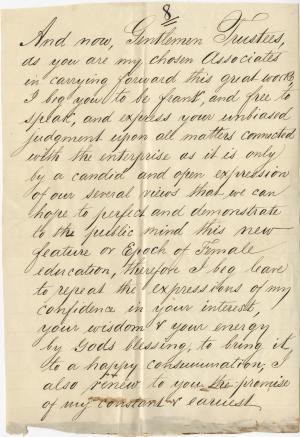 8
And now, Gentlemen Trustees,
as you are my chosen Associates
in carrying forward this great work,
I beg you to be frank, and free to
speak, and express your unbiased
judgment upon all matters connected
with the enterprise as it is only
by a candid and open expression
of our several views that we can
hope to perfect and demonstrate
to the public mind this new
feature or Epoch of Female
education, therefore I beg leave
to repeat the expressions of my
confidence in your interest,
your wisdom & your energy
by Gods blessing, to bring it
to a happy consummation, I
also renew to you the promise
of my constant & earnest